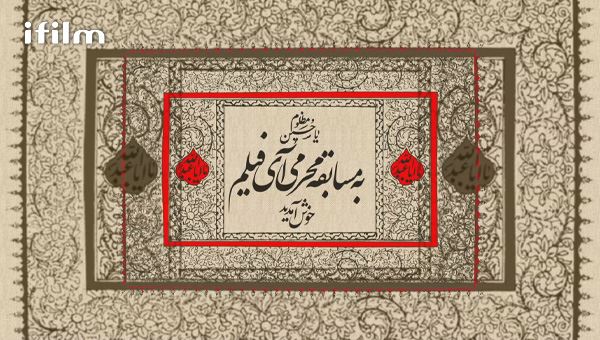 ifilm
یا حسین مظلوم
به مسابقه محرمی آی فیلم
خوش آمدید
یا اباعبدالله
یا اباعبدالله
یا اباعبدالله
یا اباعبدالله